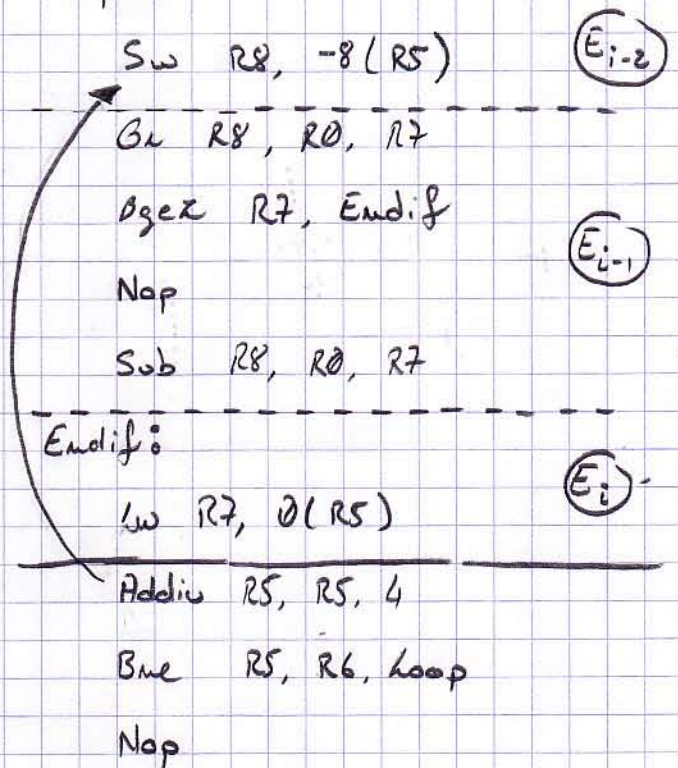 Sw R8, -8(R5) E i-2
Or R8, R0, R7
Bgez R7, Endif
E i-1
Nop
Sub R8, R0, R7
Endif:
E i
Lw R7, 0(R5)
Addiu R5, R5, 4
Bne R5, R6, Loop
Nop